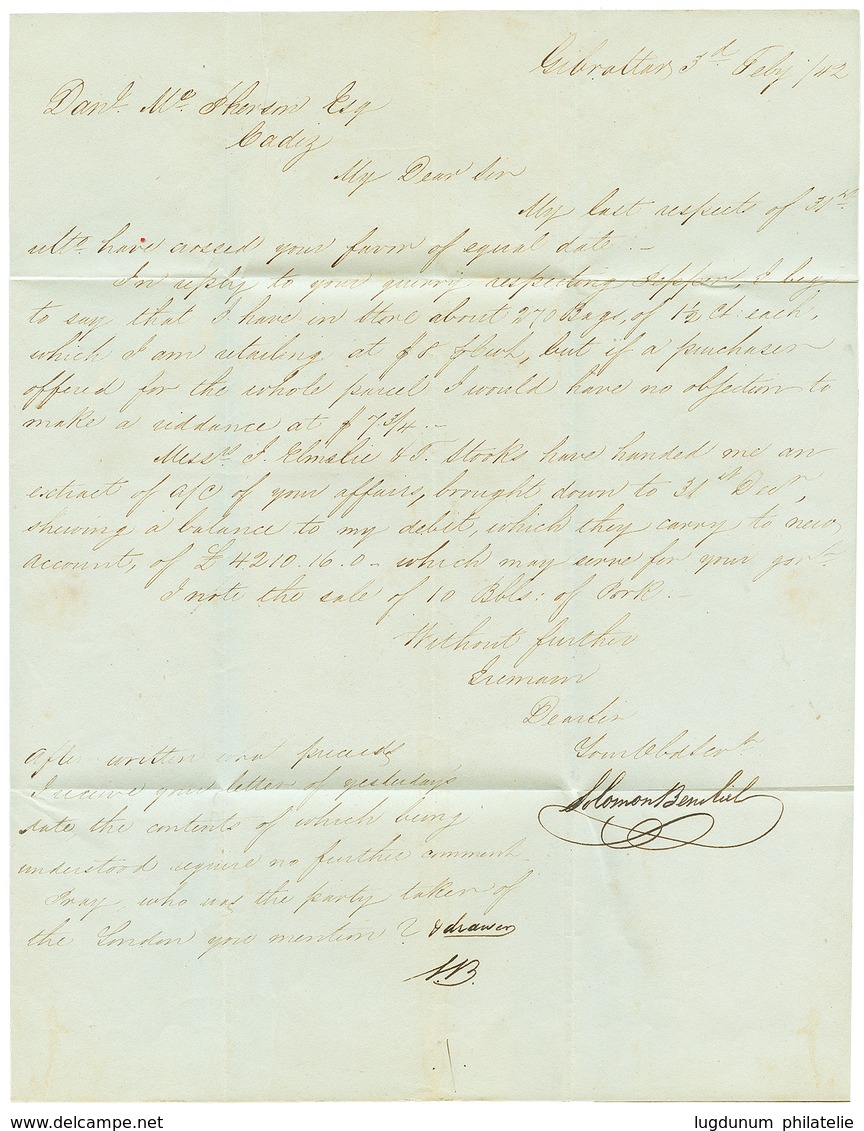 Gibraltar 3d Feby /42
Danl. Mc. Pherson Esq
Cadiz
My Dear Sir
My last respects of 31st
ulto. have crossed your favor of equal date. –
In reply to your query respecting Pepper, I beg
to say that I have in Store about 270 Bags, of 1½ Ct: each,
which I am retailing at $8 pCwt, but if a purchaser
offered for the whole parcel I would have no objection to
make a riddance at $ 7 3/4. –
Messrs J. Elmslie & T. Stooks have handed me an
extract of a/c of your affairs, brought down to 31st Decr,
shewing a balance to my debit, which they carry to new
account, of £ 4210.16.0 – which may serve for your govt.
I note the sale of 10 Bbls: of Pork. –
Without further
I remain
Dear Sir
Your Obd Servt
Solomon Benoliel
After written was
I receive your letter of yesterday's
date the contents of which being
understood require no further comment
Pray, who was the party taken of
the London you mention ? & drawer
S.B.
lugdunum philatelie